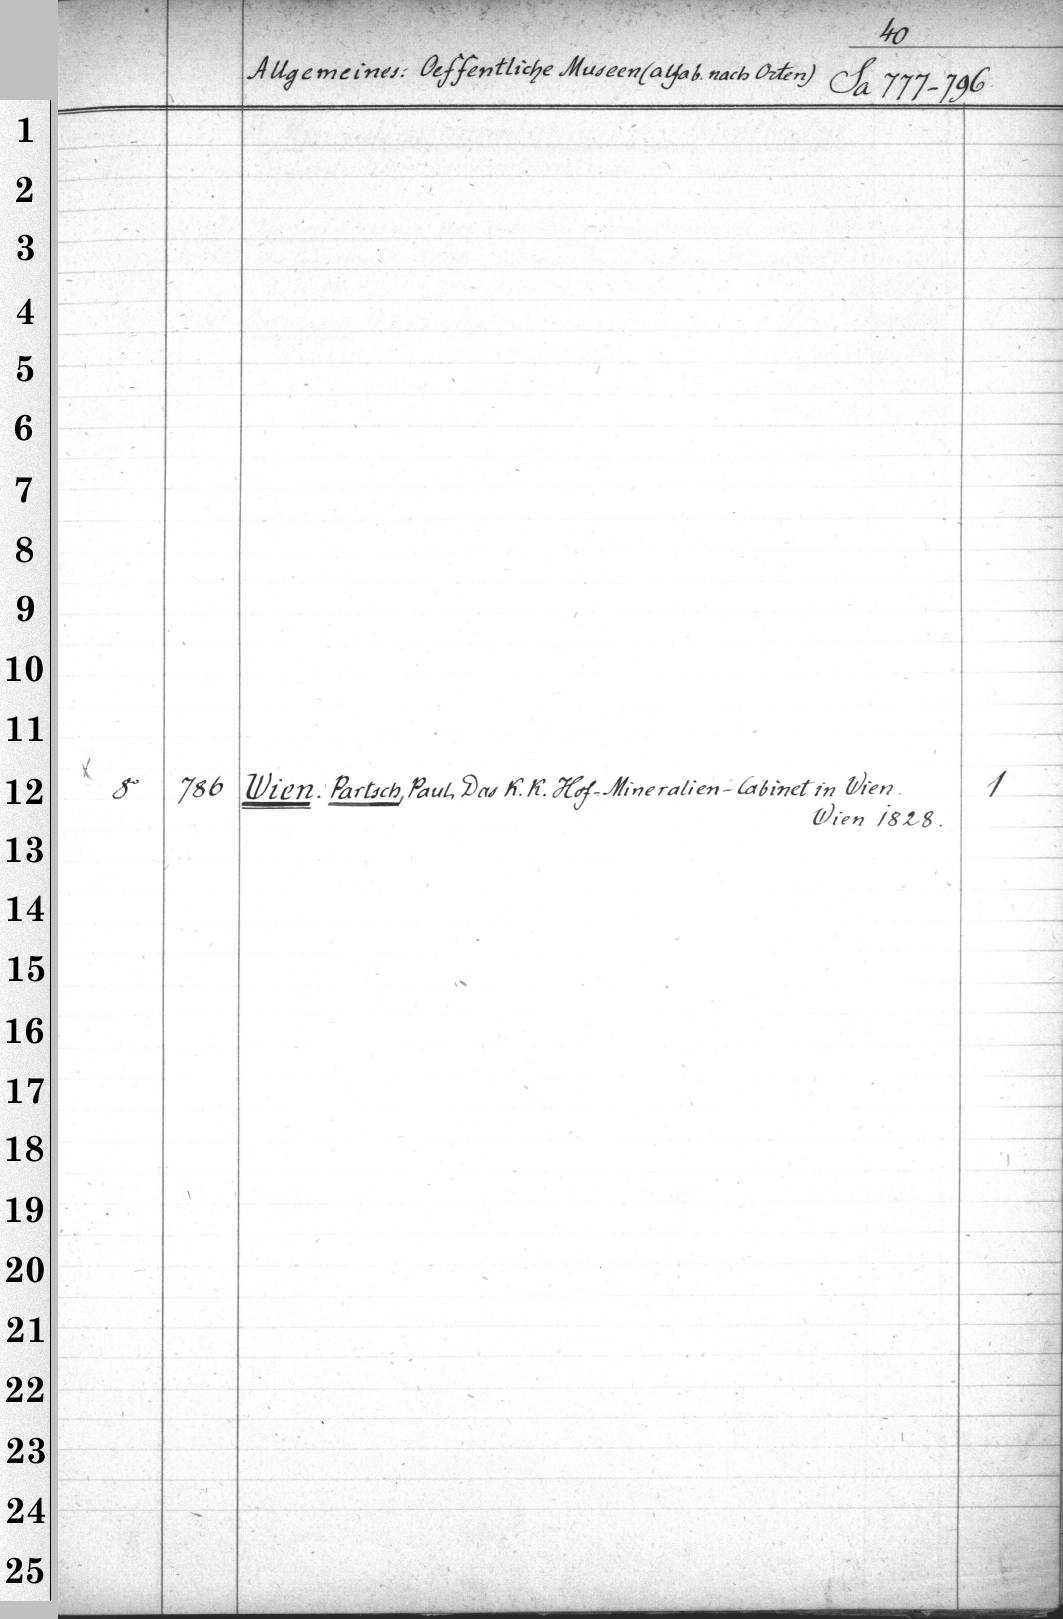 40
Allgemeines: Oeffentliche Museen (alfab. nach Orten) Sa 777-796
1
2
3
4
5
6
7
8
9
10
11
12 8° 786 Wien. Partsch, Paul, Das K. K. Hof-Mineralien-Cabinet in Wien. 1
Wien 1828.
13
14
15
16
17
18
19
20
21
22
23
24
25